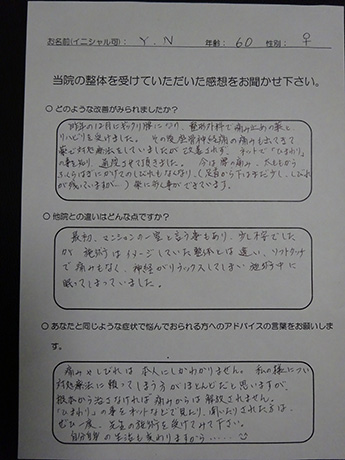 お名前(イニシャル可): Y.N 年齢: 60 性別: ♀
当院の整体を受けていただいた感想をお聞かせ下さい。
○ どのような改善がみられましたか?
昨年の12月にギックリ腰になり、整形外科で痛み止めの薬と
リハビリを受けました。その後坐骨神経痛の痛みも出てきて
薬で対処療法をしていましたが改善されず、ネットで「ひまわり」
の事を知り、通院させて頂きました。今は腰の痛み、太ももから
ふくらはぎにかけてのしびれもなくなり、(足首から下はまだ少し、しびれ
が残っていますが…)楽に外し事ができています。
○ 他院との違いはどんな点ですか?
最初、マンションの一室と言う事もあり、少し不安でした
が 施術はイメージしていた整体とは違い、ソフトタッチ
で痛みもなく、神経がリラックスしてしまい施術中に
眠ってしまっていました。
○ あなたと同じような症状で悩んでおられる方へのアドバイスの言葉をお願いしま
す。
痛みやしびれは本人にしかわかりません。私の様につい
対処療法に頼ってしまう方がほとんどだと思いますが、
根本から治さなければ痛みからは解放されません。
「ひまわり」の事をネットなどで見たり、聞いたりされた方は、
ぜひ一度、先生の施術を受けてみて下さい。
自分自身の生活も変わりますから……